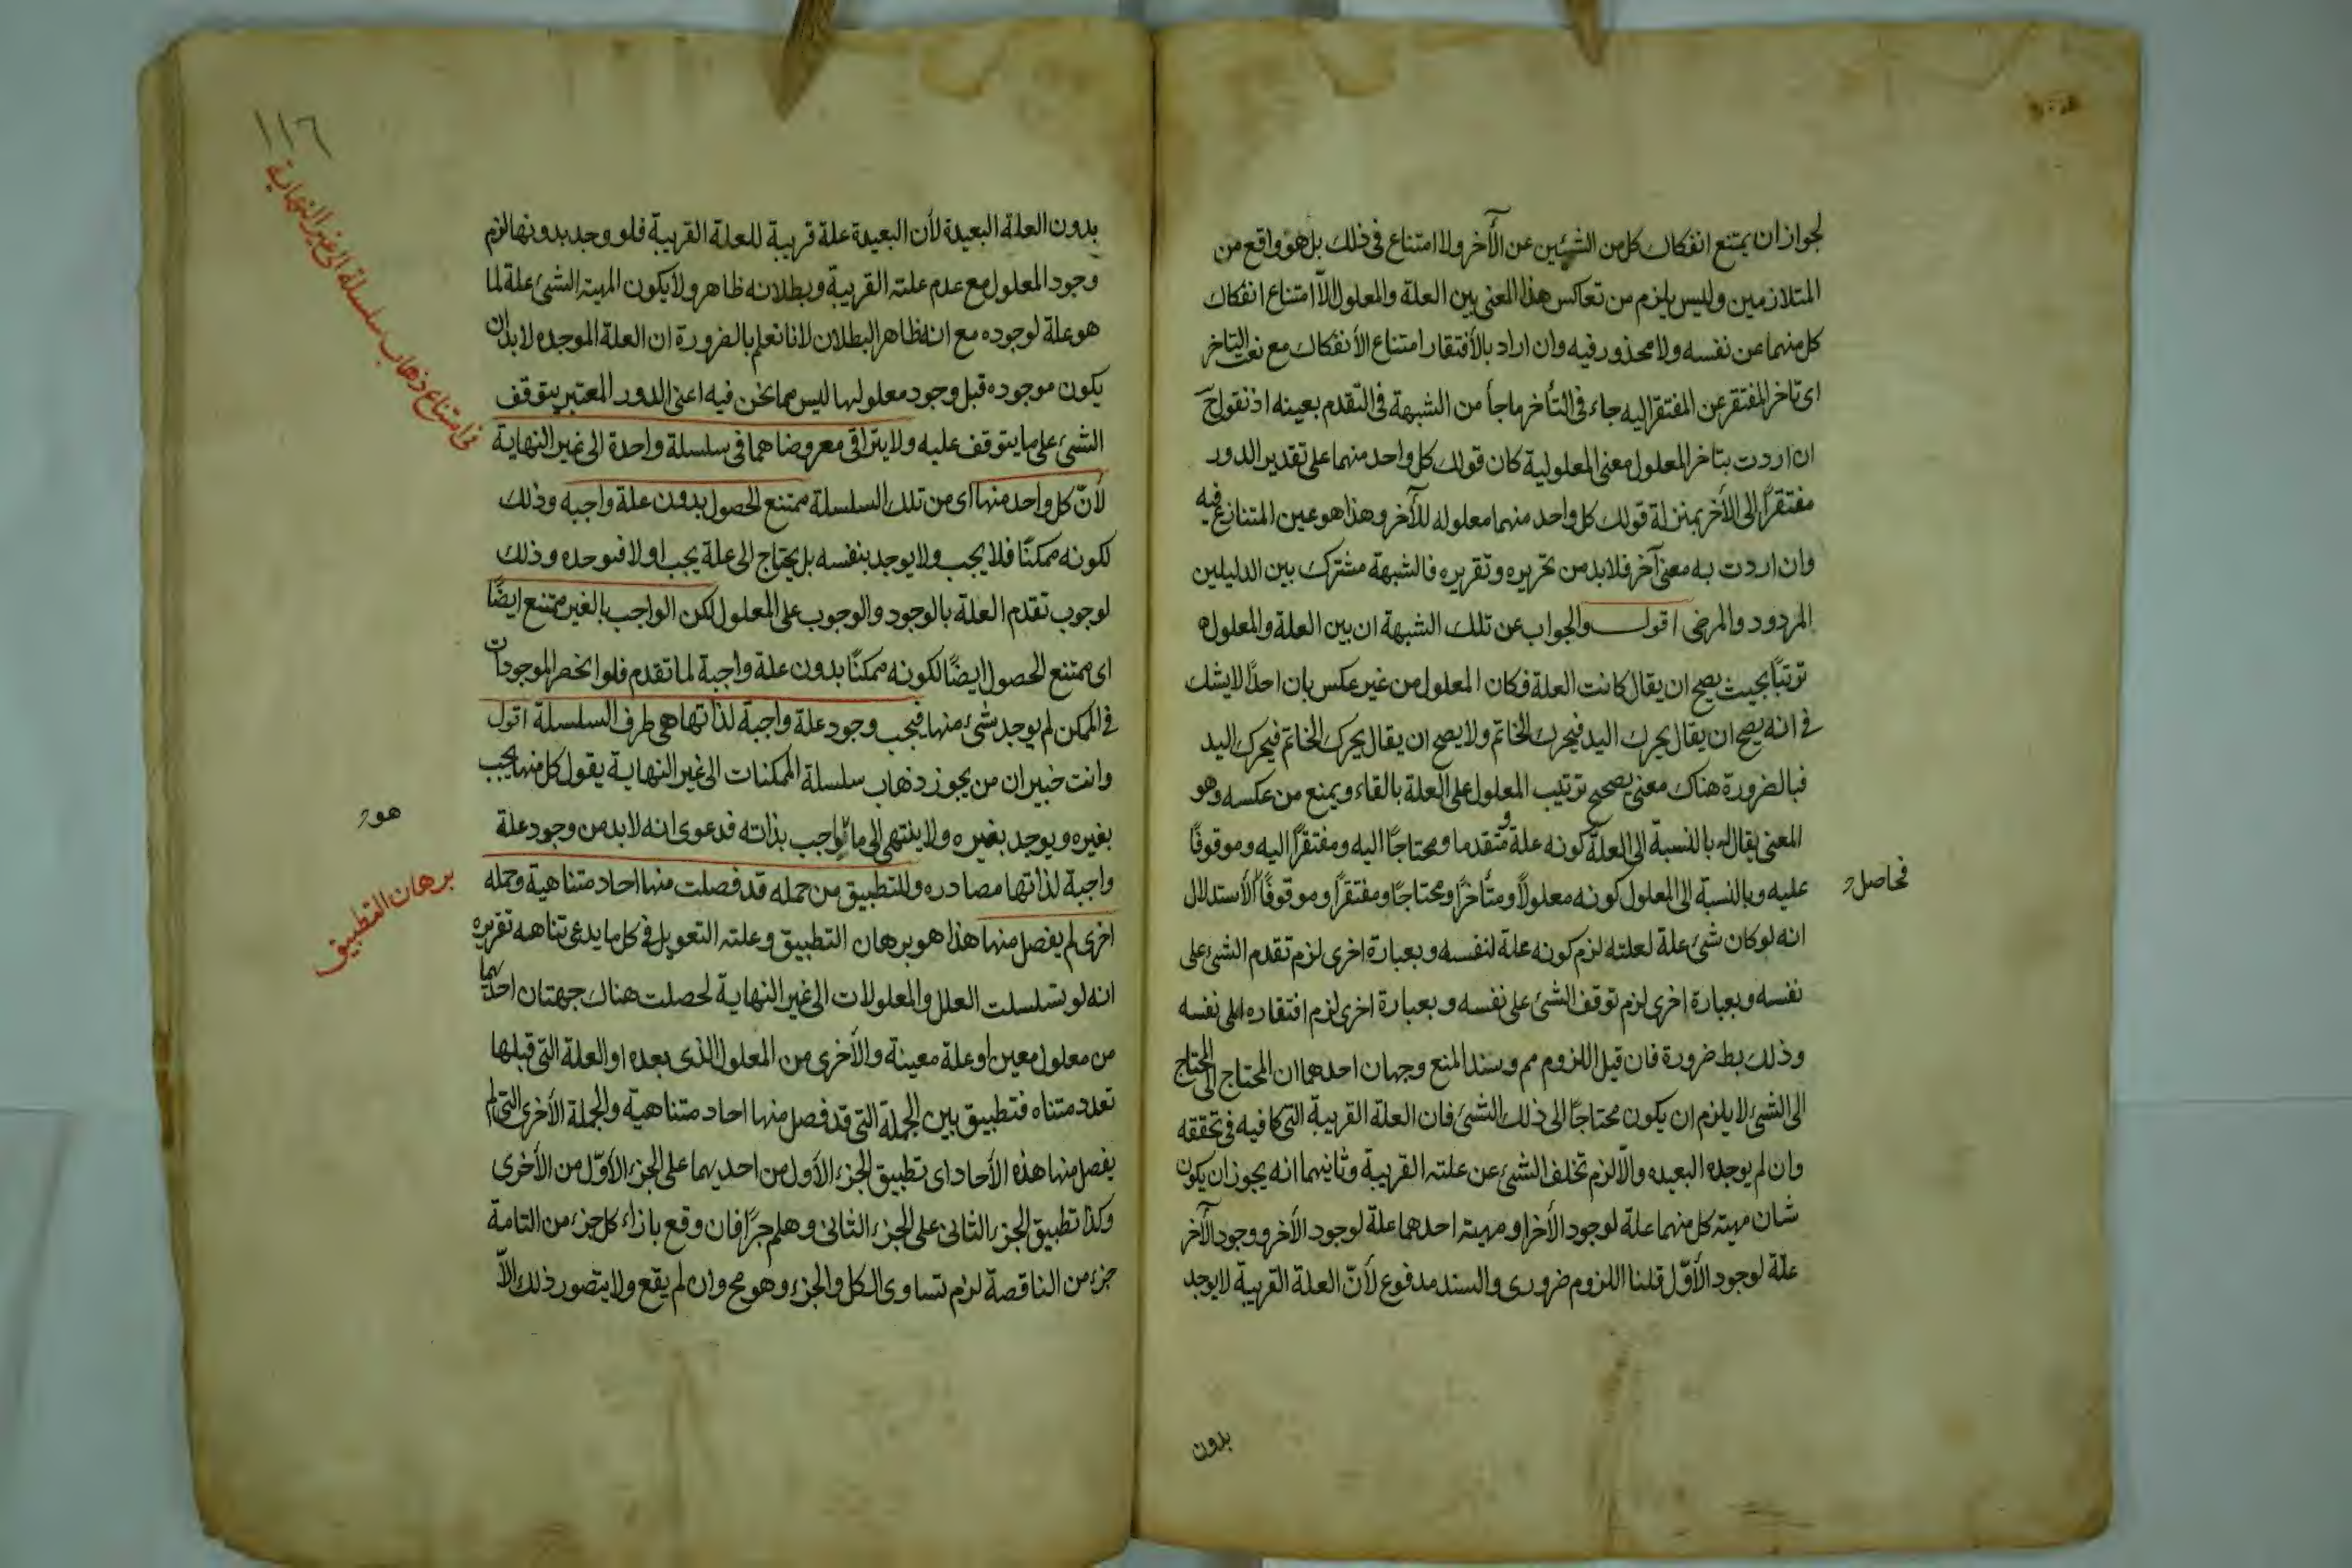 لجواز ان يمتنع انفكاك كل من الشيئين عن الآخر ولا امتناع في ذلك بل هو واقع من
المتلازمين وليس يلزم من تعاكس هذا المعنى بين العلة والمعلول الا امتناع انفكاك
كل منهما عن نفسه ولا محذور فيه وان اراد بالأفتقار امتناع الأنفكاك مع نعت التاخر
اى تاخر المفتقر عن المفتقر اليه جاء في التأخر ما جاأ من الشبهة في التقدم بعينه اذ نقول ح
ان اردت بتاخر المعلول معنى المعلولية كان قولك كل واحد منهما على تقدير الدور
مفتقرًا الى الأخر بمنزلة قولك كل واحد منهما معلوله للآخر وهذا هو عين المتنازع فيه
وان اردت به معنى آخر فلا بد من تحريره وتقريره فالشبهة مشترك بين الدليلين
المردود والمرضى اقول والجواب عن تلك الشبهة ان بين العلة والمعلول
ترتبًا بحيث يصح ان يقال كانت العلة فكان المعلول من غير عكس بان احدًا لا يشك
في انه يصح ان يقال يحرك اليد فيحرك الخاتم ولا يصح ان يقال يحرك الخاتم فيحرك اليد
فبالضرورة هناك معنى يصحح ترتيب المعلول على العلة بالفاء ويمنع من عكسه وهو
المعنى يقال له بالنسبة الى العلة كونه علة ومتقدما ومحتاجًا اليه ومفتقرًا اليه وموقوفًا
عليه وبالنسبة الى المعلول كونه معلولًا ومتأخرًا ومحتاجًا ومفتقرًا وموقوفًا الأستدلال
فحاصل
انه لو كان شئ علة لعلته لزم كونه علة لنفسه وبعبارة اخرى لزم تقدم الشئ على
نفسه وبعبارة اخرى لزم توقف الشئ على نفسه وبعبارة اخرى لزم افتقاره الى نفسه
وذلك بط ضرورة فان قيل اللزوم مم وسند المنع وجهان احدهما ان المحتاج الى المحتاج
الى الشئ لا يلزم ان يكون محتاجًا الى ذلك الشئ فان العلة القريبة التى كافيه في تحققه
وان لم يوجده البعيده والّا لزم تخلف الشئ عن علته القريبة وثانيهما انه يجوز ان يكون
شان مهيته كل منهما علة لوجود الأخر او مهيته احدهما علة لوجود الأخر ووجود الآخر
علة لوجود الأوّل قلنا اللزوم ضرورى والسند مدفوع لأنّ العلة القريبة لا يوجد
بدون
١١٦
بدون العلة البعيدة لأن البعيدة علة قريبة للعلة القريبة فلو وجد بدونها لزم
وجود المعلول مع عدم علته القريبة وبطلانه ظاهر ولا يكون المهيته الشئ علة لما
هو علة لوجوده مع انه ظاهر البطلان لانا نعلم بالضرورة ان العلة الموجده لا بد ان
يكون موجوده قبل وجود معلولها ليس مما نحن فيه اعنى الدور المعتبر بتوقف
الشئ على ما يتوقف عليه ولا يتراقى معروضاهما في سلسلة واحدة الى غير النهاية
في امتناع ذهاب سلسلة الى غير النهاية
لأنّ كل واحد منها اى من تلك السلسلة ممتنع الحصول بدون علة واجبه وذلك
لكونه ممكنًا فلا يجب ولا يوجد بنفسه بل يحتاج الى علة يجب اولا فتوجده وذلك
لوجوب تقدم العلة بالوجود والوجوب على المعلول لكن الواجب بالغير ممتنع ايضًا
اى ممتنع الحصول ايضًا لكونه ممكنًا بدون علة واجبة لما تقدم فلو انحصر الموجودات
في الممكن لم يوجد شئ منها فيجب وجود علة واجبة لذاتها هى طرف السلسلة اقول
وانت خبير ان من يجوز ذهاب سلسلة الممكنات الى غير النهاية يقول كل منها يجب
بغيره ويوجد بغيره ولا ينتهى الى ما واجب بذاته فدعوى انه لا بد من وجود علة
هو
واجبة لذاتها مصادره وللتطبيق من جمله قد فصلت منها احاد متناهية وجمله
برهان التطبيق
اخرى لم يفصل منها هذا هو برهان التطبيق وعلته التعويل في كل ما يدعى تناهيه تقريره
انه لو تسلسلت العلل والمعلولات الى غير النهاية لحصلت هناك جهتان احديهما
من معلول معين او علة معينة والأخرى من المعلول الذى بعده او العلة التى قبلها
تعدد متناه فتطبيق بين الجملة التى قد فصل منها احاد متناهية والجملة الأخرى التى لم
يفصل منها هذه الأحاد اى تطبيق الجزء الأول من احديهما على الجزء الأوّل من الأخرى
وكذا تطبيق الجزء الثانى على الجزء الثانى وهلم جرًا فان وقع بازاء كل جزء من التامة
جزء من الناقصة لزم تساوى الكل والجزء وهو مح وان لم يقع ولا يتصور ذلك الّا